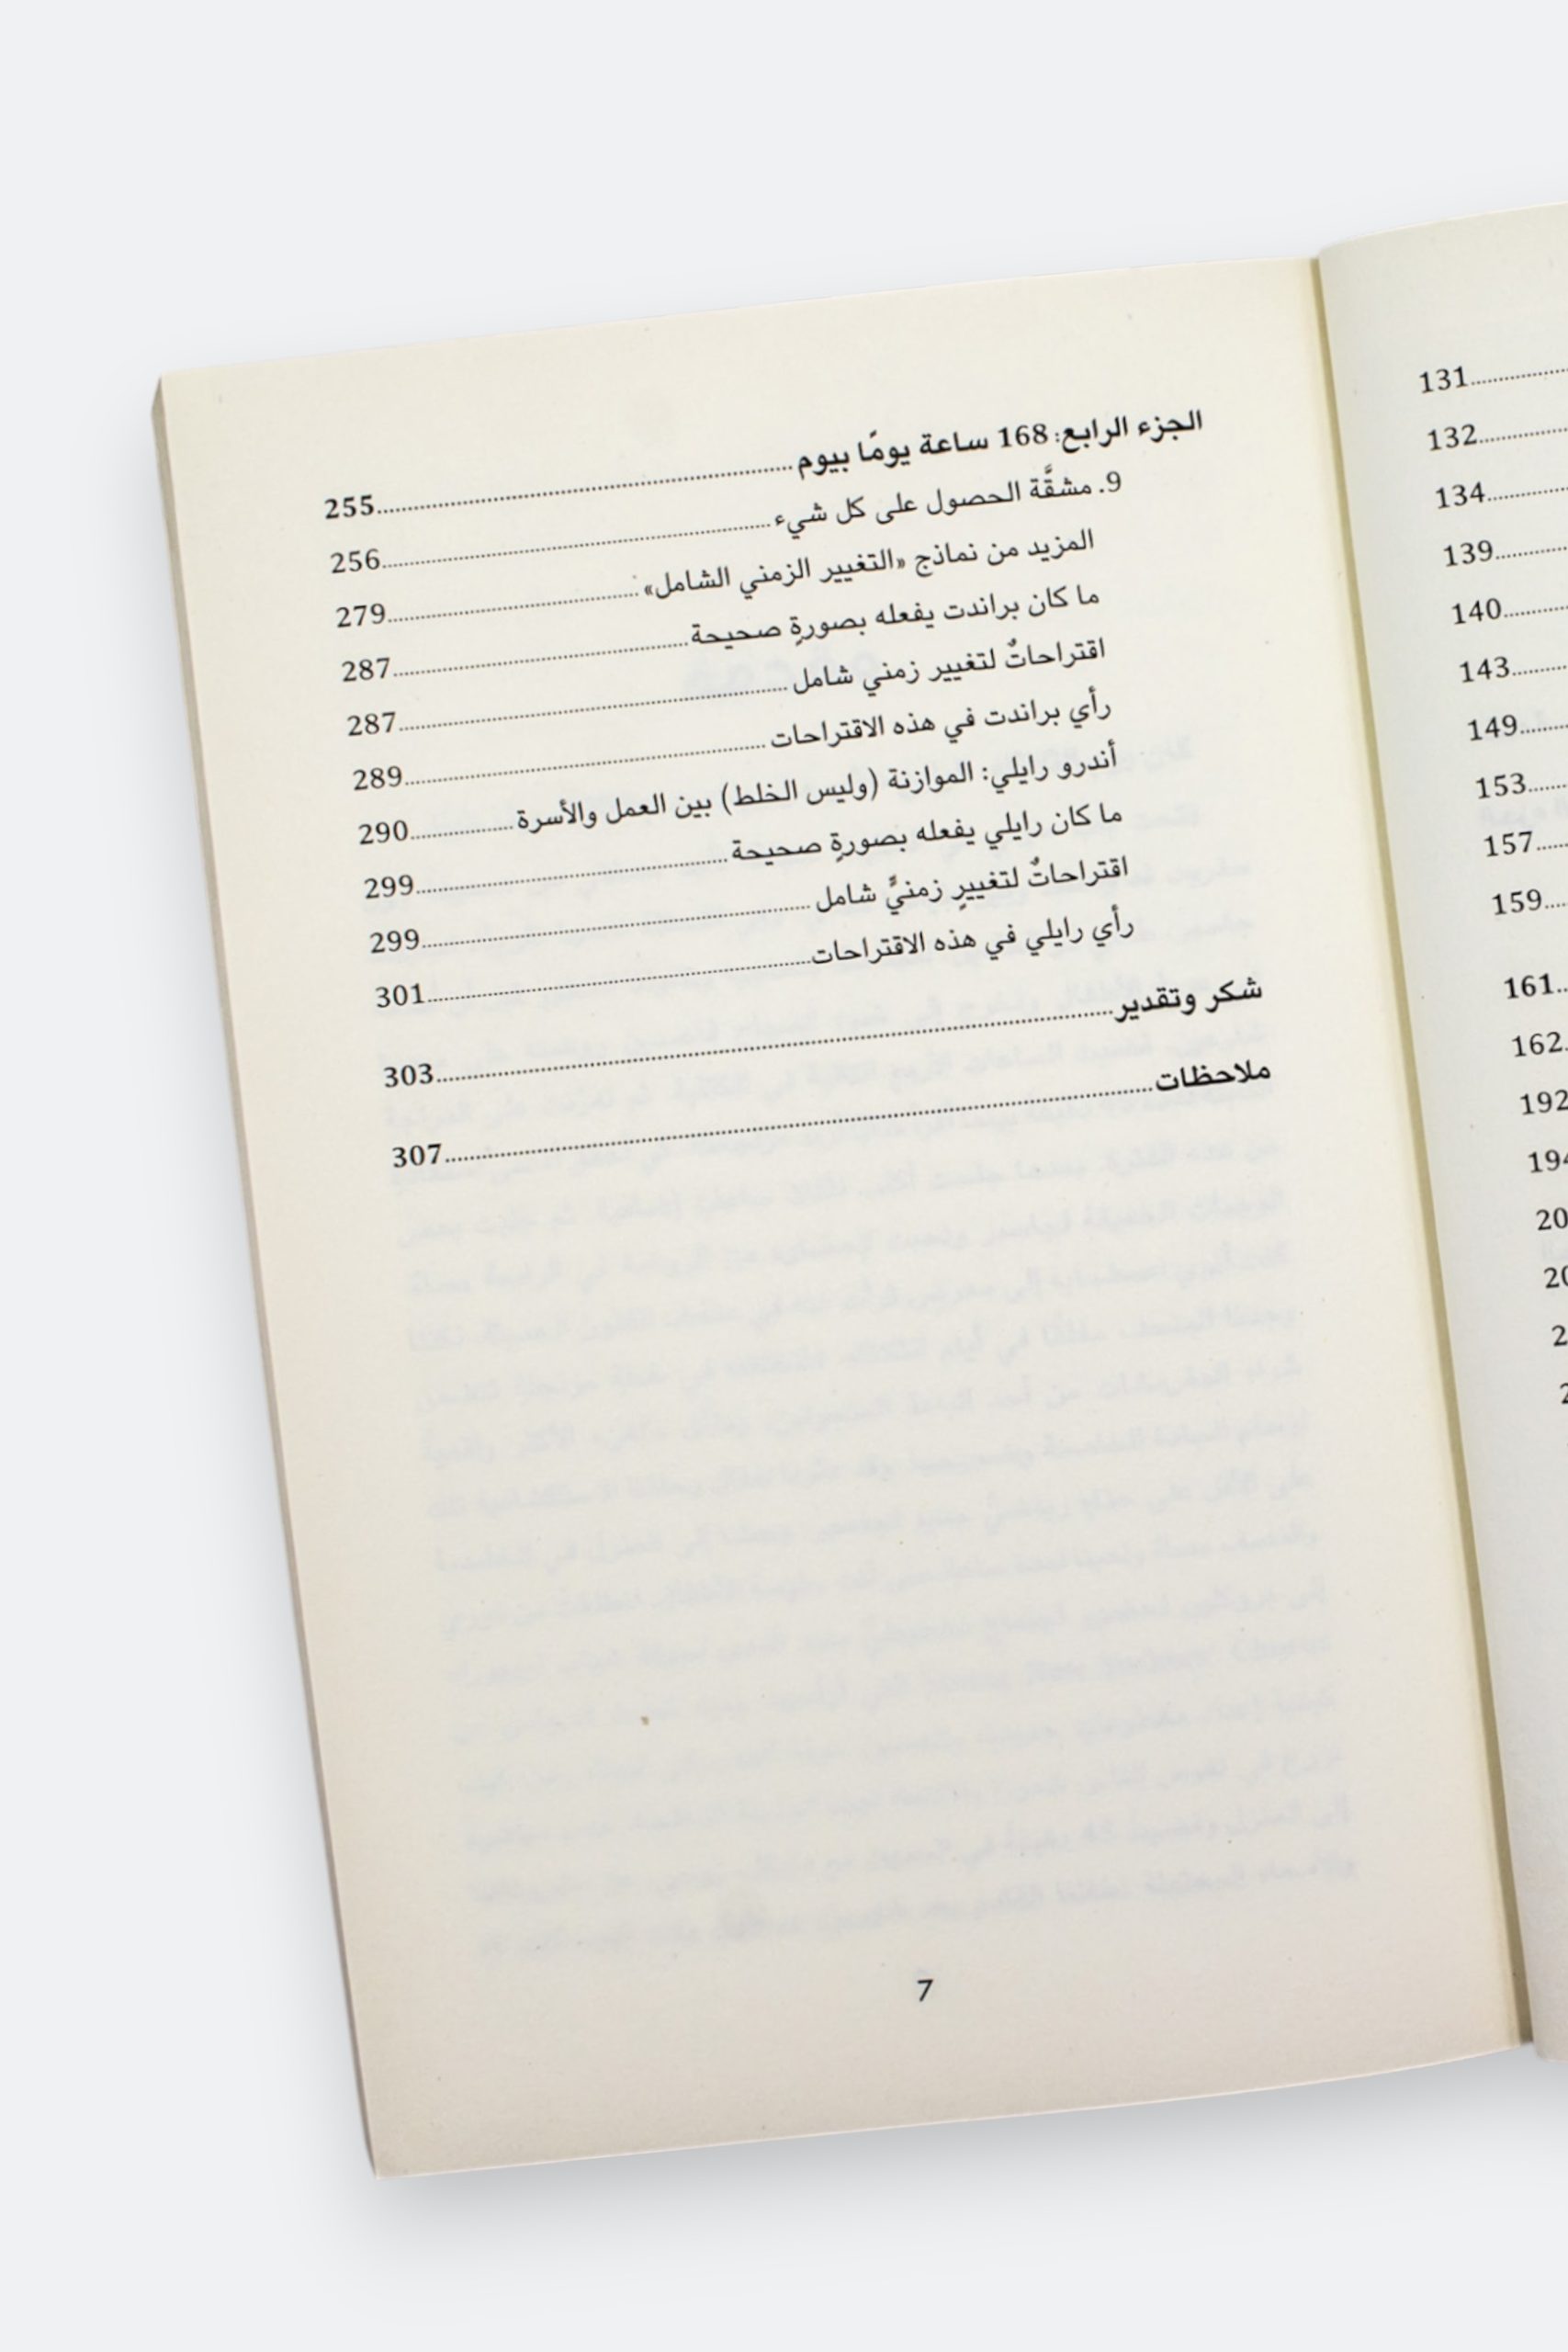 131
132
134
139
140
143
149
153
157
159
161
162
192
الجزء الرابع: 168 ساعة يومًا بيوم 255
9. مشقَّة الحصول على كل شيء 256
المزيد من نماذج «التغيير الزمني الشامل» 279
ما كان براندت يفعله بصورةٍ صحيحة 287
اقتراحاتٌ لتغيير زمني شامل 287
رأي براندت في هذه الاقتراحات 289
أندرو رايلي: الموازنة (وليس الخلط) بين العمل والأسرة 290
ما كان رايلي يفعله بصورةٍ صحيحة 299
اقتراحاتٌ لتغييرٍ زمنيٍّ شامل 299
رأي رايلي في هذه الاقتراحات 301
شكر وتقدير 303
ملاحظات 307
7